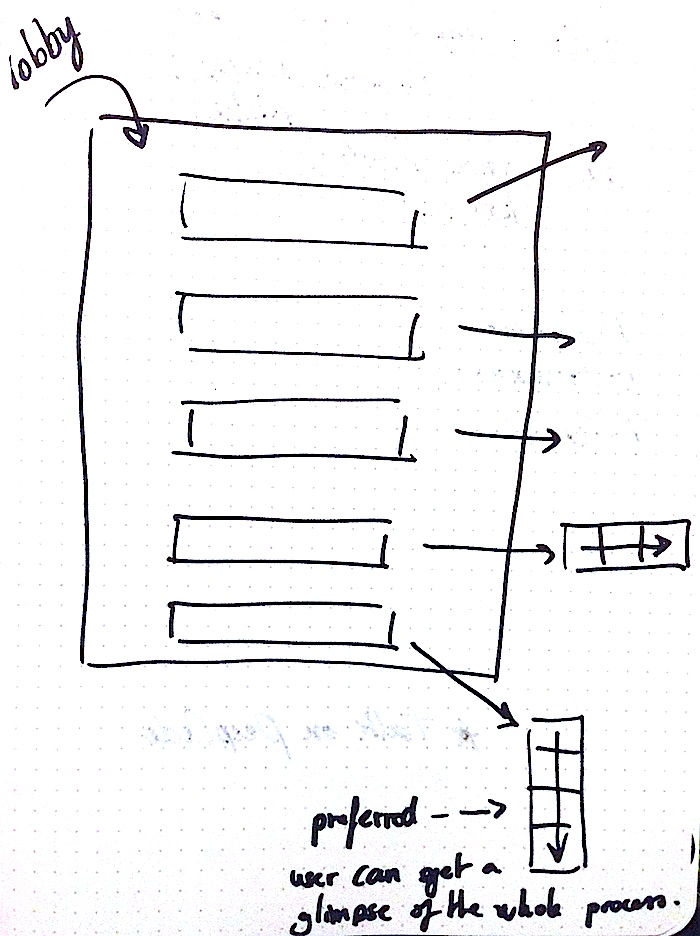 lobby
preferrod - - →
user can get a
glimpse of the whole process.